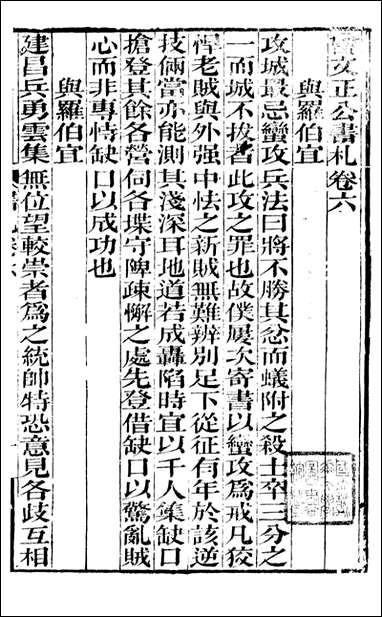 曾文正公書札卷六
與羅伯宜
攻城最忌蠻攻兵法曰將不勝其忿而蟻附之殺士卒三分之
一而城不拔者此攻之罪也故僕屢次寄書以蠻攻爲戒凡狡
悍老賊與外强中怯之新賊無難辨別足下從征有年於該逆
技倆當亦能測其淺深耳地道若成轟陷時宜以千人集缺口
搶登其餘各營伺各堞守陴疎懈之處先登借缺口以驚亂賊
心而非專恃缺口以成功也
與羅伯宜
建昌兵勇雲集無位望較崇者爲之統帥特恐意見各歧互相